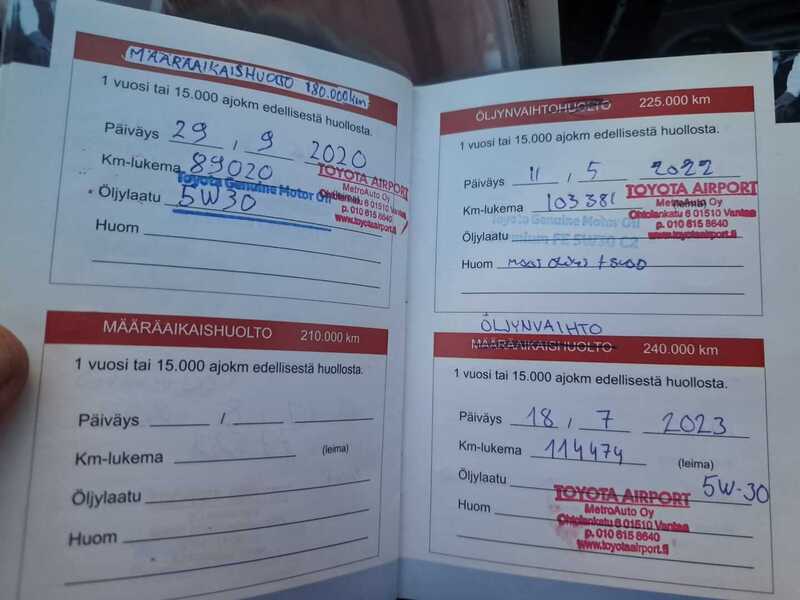 MÄÄRÄAIKAISHUOLTO 180.000km
1 vuosi tai 15.000 ajokm edellisestä huollosta.
Päiväys 29 , 9 2020
Km-lukema 89020
TOYOTA AIRPORT
MetroAuto Oy
Ohtolankatu 6 01510 Vantaa
p. 010 615 8640
www.toyotaairport.fi
Toyota Genuine Motor Oil
Öljylaatu 5W30
Huom
MÄÄRÄAIKAISHUOLTO 210.000 km
1 vuosi tai 15.000 ajokm edellisestä huollosta.
Päiväys / 
Km-lukema (leima)
Öljylaatu
Huom
ÖLJYNVAIHTOHUOLTO 225.000 km
1 vuosi tai 15.000 ajokm edellisestä huollosta.
Päiväys 11 , 5 2022
Km-lukema 103381 (leima)
TOYOTA AIRPORT
MetroAuto Oy
Ohtolankatu 6 01510 Vantaa
p. 010 615 8640
www.toyotaairport.fi
Toyota Genuine Motor Oil
Öljylaatu Premium FE 5W30 C2
Huom
ÖLJYNVAIHTO
MÄÄRÄAIKAISHUOLTO 240.000 km
1 vuosi tai 15.000 ajokm edellisestä huollosta.
Päiväys 18 , 7 2023
Km-lukema 114474 (leima)
Öljylaatu 5W-30
Huom
TOYOTA AIRPORT
MetroAuto Oy
Ohtolankatu 6 01510 Vantaa
p. 010 615 8640
www.toyotaairport.fi